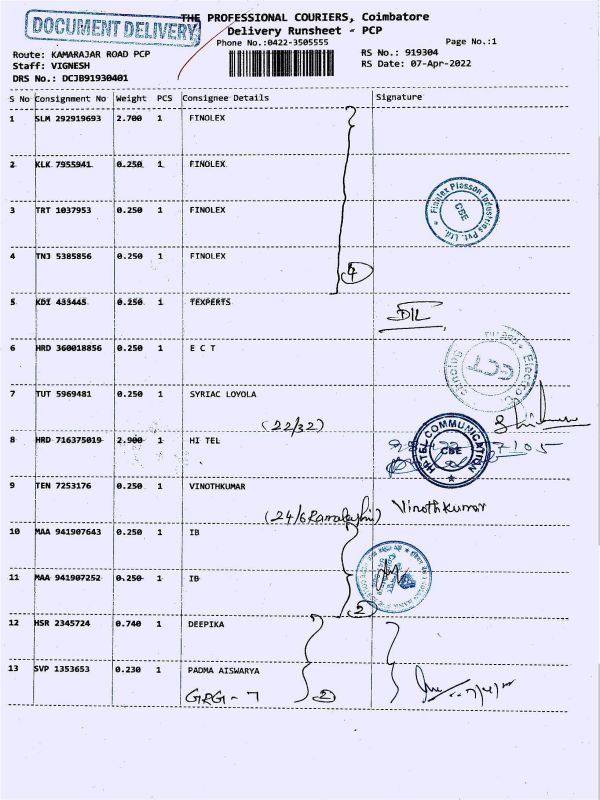 DOCUMENT DELIVERY
THE PROFESSIONAL COURIERS, Coimbatore
Delivery Runsheet - PCP
Phone No.:0422-3505555
Page No.:1
Route: KAMARAJAR ROAD PCP
RS No.: 919304
Staff: VIGNESH
RS Date: 07-Apr-2022
DRS No.: DCJB91930401
S No Consignment No Weight PCS Consignee Details Signature
1 SLM 292919693 2.700 1 FINOLEX
2 KLK 7955941 0.250 1 FINOLEX
3 TRT 1037953 0.250 1 FINOLEX
Finolex Plasson Industries Pvt. Ltd.
CBE
4 TNJ 5385856 0.250 1 FINOLEX
4
5 KDI 433445 0.250 1 TEXPERTS
6 HRD 360018856 0.250 1 E C T
7 TUT 5969481 0.250 1 SYRIAC LOYOLA
(22/32)
8 HRD 716375019 2.900 1 HI TEL
COMMUNICATION
CBE
7105
9 TEN 7253176 0.250 1 VINOTHKUMAR
Vinothkumar
10 MAA 941907643 0.250 1 IB
11 MAA 941907252 0.250 1 IB
2
12 HSR 2345724 0.740 1 DEEPIKA
13 SVP 1353653 0.230 1 PADMA AISWARYA
GRG - 7
2